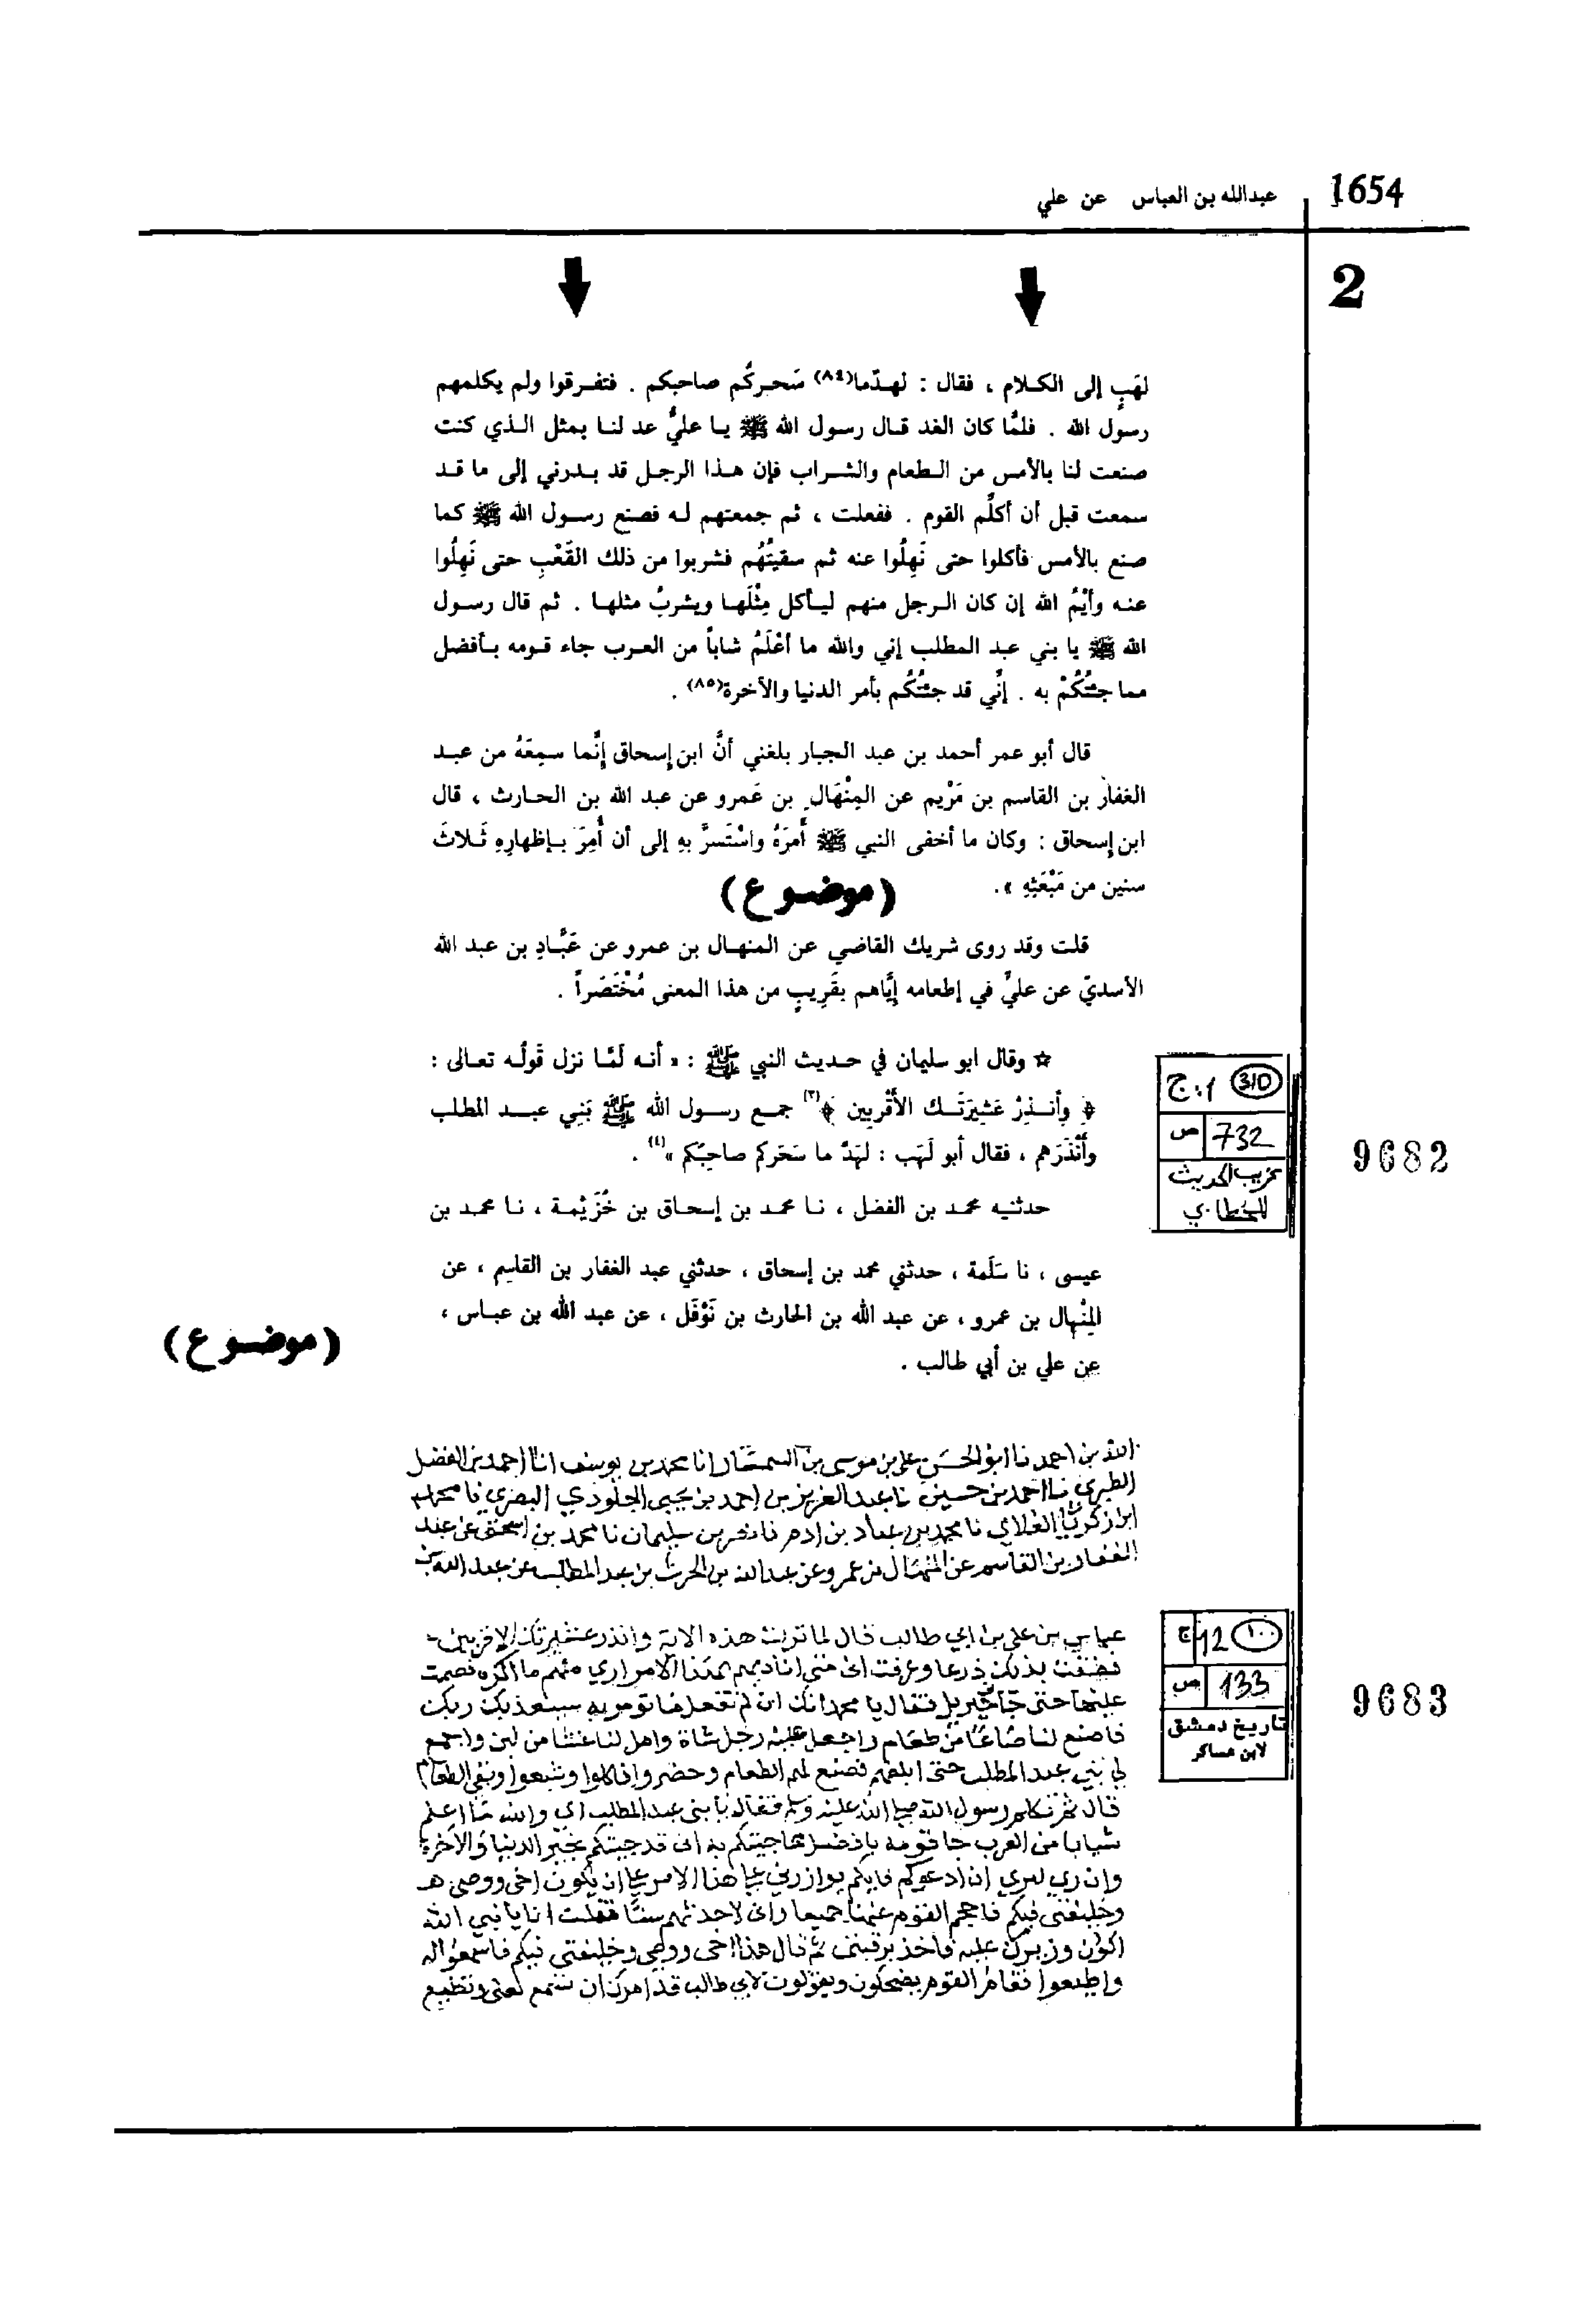 1654
عبدالله بن العباس عن علي
2
لهَبٍ إلى الكلام ، فقال : لهدّما(٨٤) سَحركُم صاحبكم . فتفرقوا ولم يكلمهم
رسول الله . فلمَّا كان الغد قال رسول الله ﷺ يا عليُّ عد لنا بمثل الذي كنت
صنعت لنا بالأمس من الطعام والشراب فإن هذا الرجل قد بدرني إلى ما قد
سمعت قبل أن أكلِّم القوم . ففعلت ، ثم جمعتهم له فصنع رسول الله ﷺ كما
صنع بالأمس فأكلوا حتى نَهِلُوا عنه ثم سقيتُهُم فشربوا من ذلك القَعْبِ حتى نَهِلُوا
عنه وأيْمُ الله إن كان الرجل منهم ليأكل مِثْلَها ويشربُ مثلها . ثم قال رسول
الله ﷺ يا بني عبد المطلب إني والله ما أعْلَمُ شاباً من العرب جاء قومه بأفضل
مما جئتُكُمْ به . إنِّي قد جئتُكُم بأمر الدنيا والآخرة(٨٥) .
قال أبو عمر أحمد بن عبد الجبار بلغني أنَّ ابن إسحاق إنَّما سمِعَهُ من عبد
الغفار بن القاسم بن مَرْيم عن المِنْهَالِ بن عَمرو عن عبد الله بن الحارث ، قال
ابن إسحاق : وكان ما أخفى النبي ﷺ أمرَهُ واسْتَسرَّ بهِ إلى أن أُمِرَ بإظهارِهِ ثَلاثَ
سنين من مَبْعَثِهِ » .
(موضوع)
قلت وقد روى شريك القاضي عن المنهال بن عمرو عن عَبَّادِ بن عبد الله
الأسديّ عن عليِّ في إطعامه إيَّاهم بقَرِيبٍ من هذا المعنى مُخْتَصَراً .
310 ج ١.
☆ وقال ابو سليمان في حديث النبي ﷺ : « أنه لَمَّا نزل قَولُه تعالى :
﴿ وأنذِرْ عَشِيرَتَك الأَقْرِبين ﴾(٣) جمع رسول الله ﷺ بَنِي عبد المطلب
732 ص
9682
وأنْذَرَهم ، فقال أبو لَهَب : لَهَدَّ ما سَحَركم صاحِبُكم »(٤) .
غريب الحديث
للخطابي
حدثنيه محمد بن الفضل ، نا محمد بن إسحاق بن خُزَيْمة ، نا محمد بن
عيسى ، نا سَلَمة ، حدثني محمد بن إسحاق ، حدثني عبد الغفار بن القاسم ، عن
المِنْهال بن عمرو ، عن عبد الله بن الحارث بن نَوْفَل ، عن عبد الله بن عباس ،
عن علي بن أبي طالب .
(موضوع)
الله بن احمد نا ابو الحسن علي بن موسى بن السمسار انا محمد بن يوسف انا احمد بن الفضل
الطبري نا احمد بن حسين نا عبد العزيز بن احمد بن يحيى الجلودي البصري نا محمد
ابن زكريا الغلابي نا محمد بن عباد بن ادم نا نصر بن سليمان نا محمد بن اسحق عن عبد
الغفار بن القاسم عن المنهال بن عمرو عن عبد الله بن الحرث بن عبد المطلب عن عبد الله بن
عباس عن علي بن ابي طالب قال لما نزلت هذه الاية وانذر عشيرتك الاقربين
فضقت بذلك ذرعا وعرفت اني متى اناديهم بهذا الامر اري منهم ما اكره فصمت
عليها حتى جاء جبريل فقال يا محمد انك ان لم تفعل ما تومر به سيعذبك ربك
فاصنع لنا صاعا من طعام واجعل عليه رجل شاة واملا لنا عسا من لبن واجمع
لي بني عبد المطلب حتى ابلغهم فصنع لهم الطعام وحضروا فاكلوا وشبعوا وبقي الطعام
قال ثم تكلم رسول الله صلى الله عليه وسلم فقال يا بني عبد المطلب اي والله ما اعلم
شبابا من العرب جا قومه بافضل مما جيتكم به اني قد جيتكم بخير الدنيا والاخرة
وان ربي امرني ان ادعوكم فايكم يوازرني على هذا الامر على ان يكون اخي ووصي
وخليفتي فيكم فاحجم القوم عنها جميعا واني لاحدثهم سنا فقلت انا يا نبي الله
اكون وزيرك عليه فاخذ برقبتي ثم قال هذا اخي ووصي وخليفتي فيكم فاسمعوا له
واطيعوا فقام القوم يضحكون ويقولون لابي طالب قد امرك ان تسمع لعلي وتطيع
١٠٠ 12 ج
133 ص
9683
تاريخ دمشق
لابن عساكر